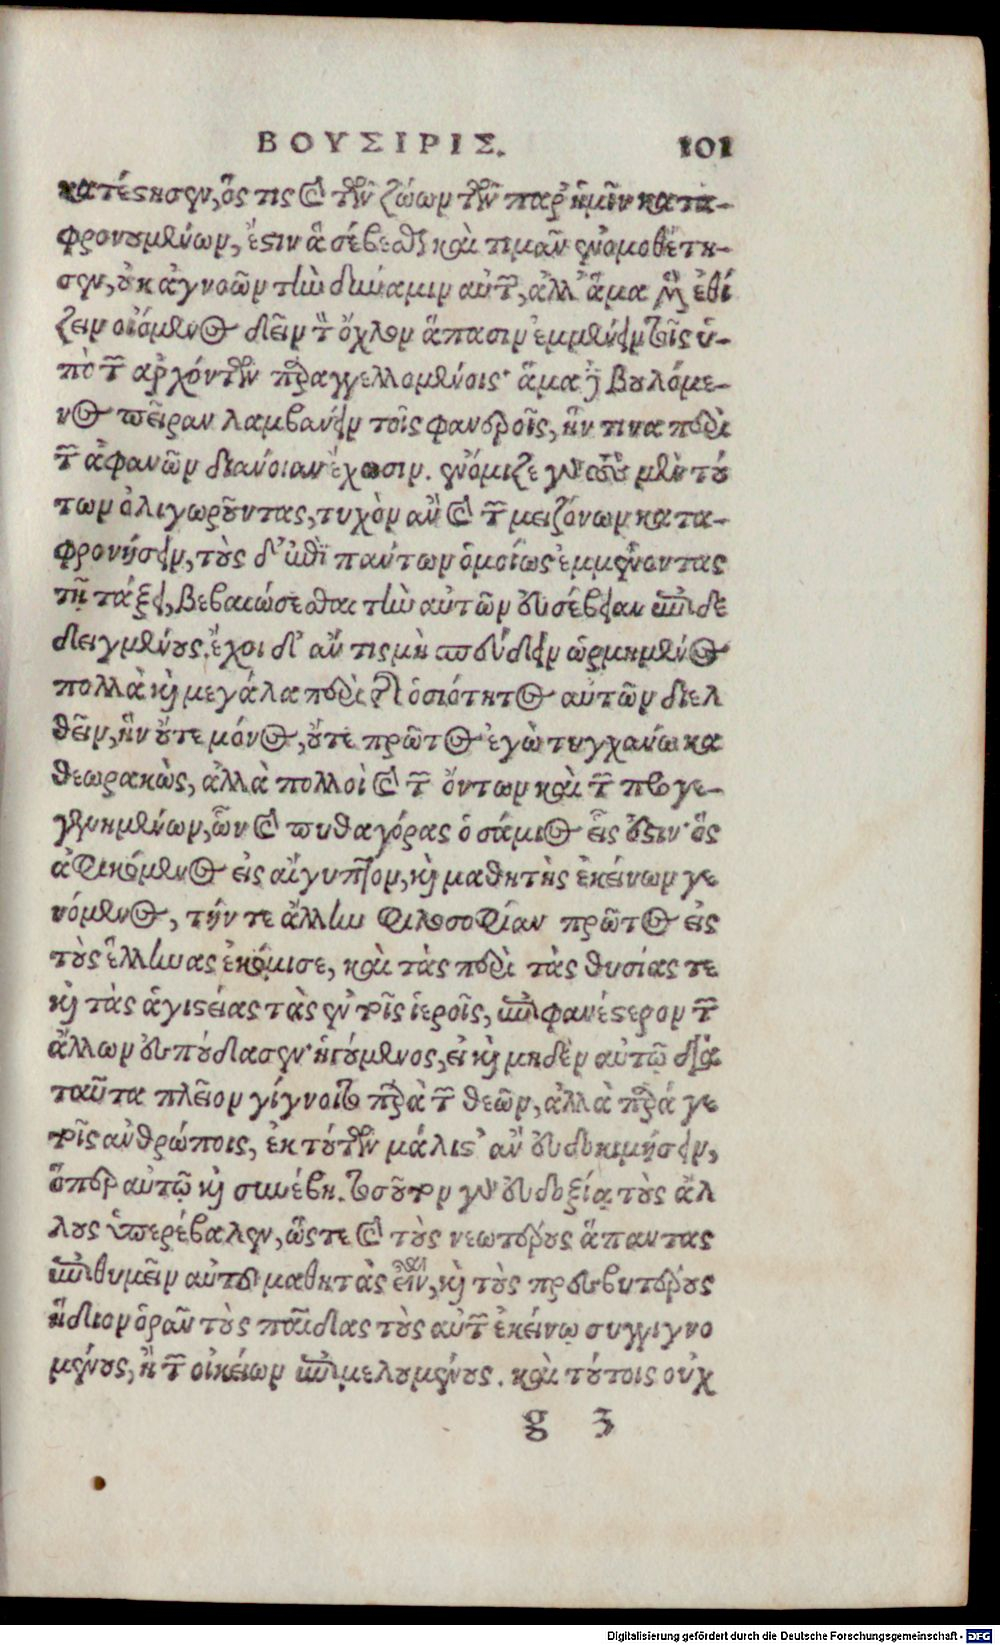 ΒΟΥΣΙΡΙΣ. 101
κατέστησεν, ὅς τις καὶ τῶν ζώων τῶν παρ' ἡμῖν κατα-
φρονουμένων, ἔστιν ἃ σέβεσθαι καὶ τιμᾶν ἐνομοθέτη-
σεν, οὐκ ἀγνοῶν τὴν δύναμιν αὐτῶν, ἀλλ' ἅμα μὲν ἐθί
ζειν οἰόμενος δεῖν τὸν ὄχλον ἅπασιν ἐμμένειν τοῖς ὑ-
πὸ τῶν ἀρχόντων παραγγελλομένοις· ἅμα δὲ βουλόμε-
νος πεῖραν λαμβάνειν τοῖς φανεροῖς, ἥν τινα περὶ
τῶν ἀφανῶν διάνοιαν ἔχωσιν. ἐνόμιζε γὰρ τοὺς μὲν τού
των ὀλιγωροῦντας, τυχὸν ἂν καὶ τῶν μειζόνων κατα-
φρονήσειν, τοὺς δ' ἐπὶ πάντων ὁμοίως ἐμμένοντας
τῇ τάξει, βεβαιώσεσθαι τὴν αὑτῶν εὐσέβειαν ἐπιδε
δειγμένους. ἔχοι δ' ἄν τις μὴ σπεύδειν ὡρμημένος
πολλὰ καὶ μεγάλα περὶ τῆς ὁσιότητος αὐτῶν διελ
θεῖν, ἣν οὔτε μόνος, οὔτε πρῶτος ἐγὼ τυγχάνω κα
θεωρακὼς, ἀλλὰ πολλοὶ καὶ τῶν ὄντων καὶ τῶν προγε-
γενημένων, ὧν καὶ πυθαγόρας ὁ σάμιος εἷς ἐστιν· ὃς
ἀφικόμενος εἰς αἴγυπτον, καὶ μαθητὴς ἐκείνων γε
νόμενος, τήν τε ἄλλην φιλοσοφίαν πρῶτος εἰς
τοὺς ἕλληνας ἐκόμισε, καὶ τὰς περὶ τὰς θυσίας τε
καὶ τὰς ἁγιστείας τὰς ἐν τοῖς ἱεροῖς, ἐπιφανέστερον τῶν
ἄλλων ἐσπούδασεν· ἡγούμενος, εἰ καὶ μηδὲν αὐτῷ διὰ
ταῦτα πλεῖον γίγνοιτο παρὰ τῶν θεῶν, ἀλλὰ παρά γε
τοῖς ἀνθρώποις, ἐκ τούτων μάλιστ' ἂν εὐδοκιμήσειν,
ὅπερ αὐτῷ καὶ συνέβη. τοσοῦτον γὰρ εὐδοξίᾳ τοὺς ἄλ
λους ὑπερέβαλεν, ὥστε καὶ τοὺς νεωτέρους ἅπαντας
ἐπιθυμεῖν αὐτοῦ μαθητὰς εἶναι, καὶ τοὺς πρεσβυτέρους
ἥδιον ὁρᾶν τοὺς παῖδας τοὺς αὑτῶν ἐκείνῳ συγγιγνο
μένους, ἢ τῶν οἰκείων ἐπιμελουμένους. καὶ τούτοις οὐχ
g 3
Digitalisierung gefördert durch die Deutsche Forschungsgemeinschaft - DFG